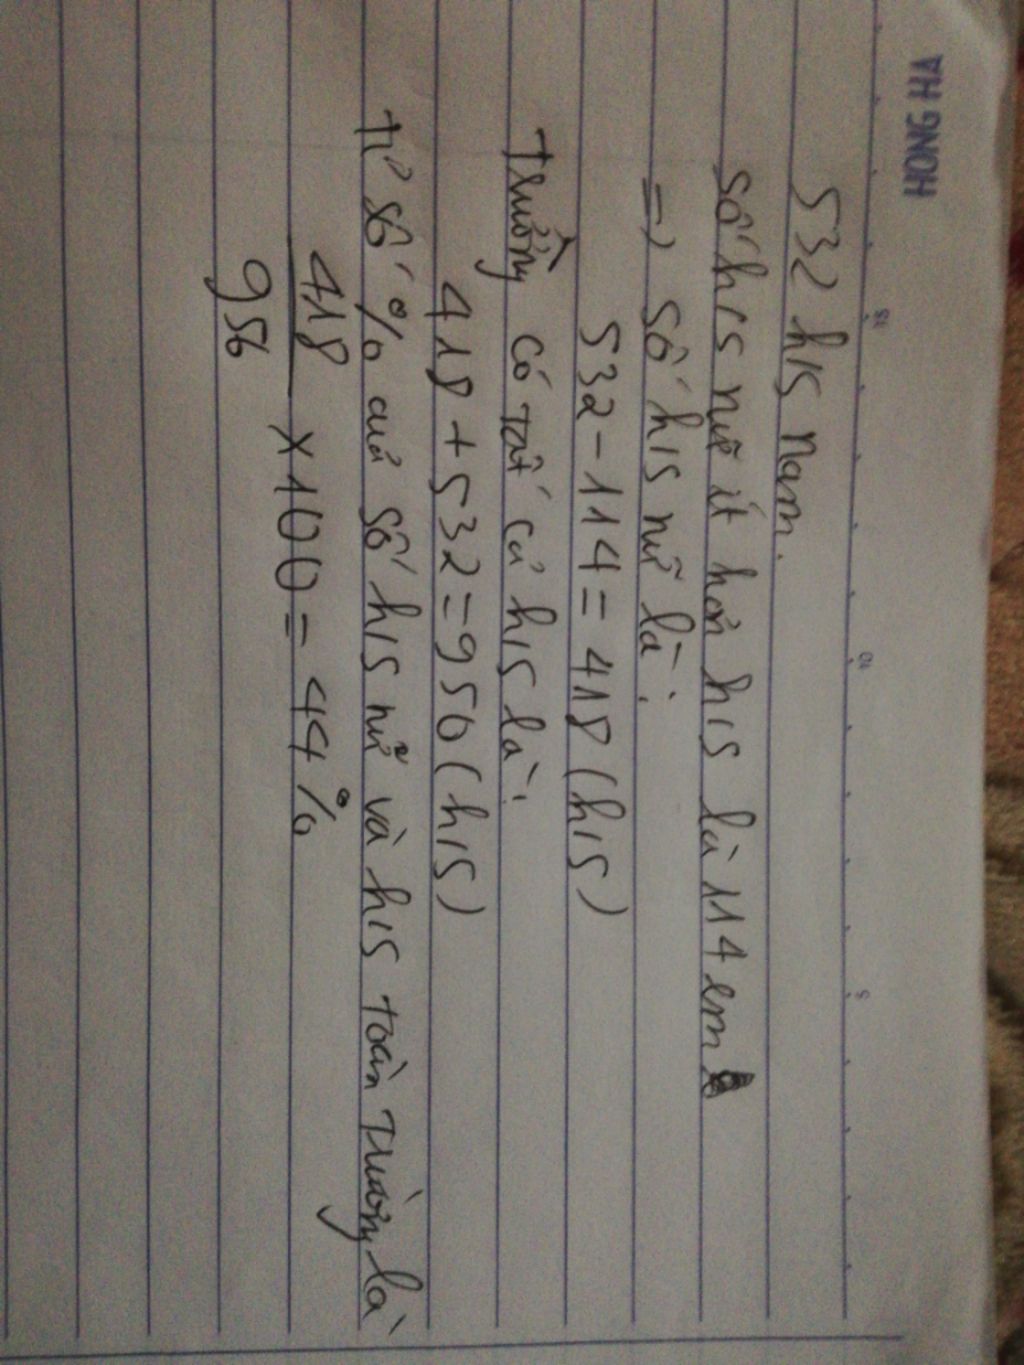 HONG HA
15 10 5
532 h/s nam.
Số h/s nữ ít hơn h/s là 114 em
=> số h/s nữ là:
532 - 114 = 418 (h/s)
Trường có tất cả h/s là:
418 + 532 = 950 (h/s)
Tỉ số % của số h/s nữ và h/s toàn trường là
418
950 × 100 = 44%